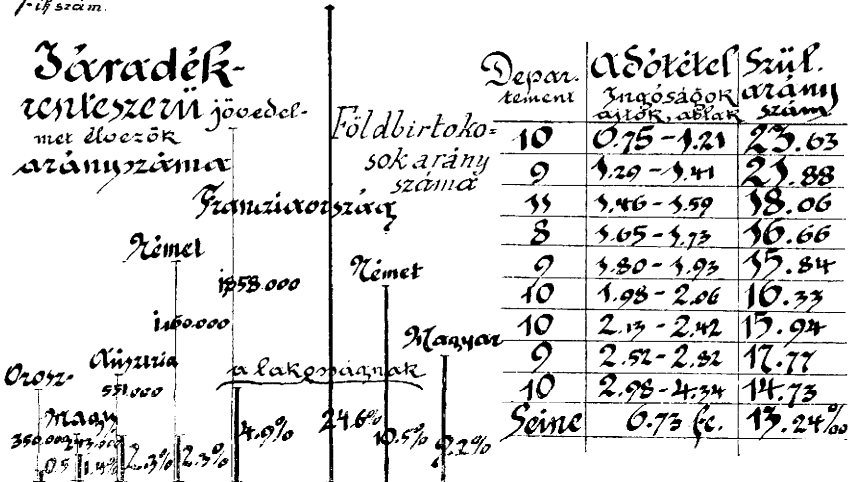 -ik szám.
Járadék-
renteszerü jövedel-
met élvezők
arányszáma
Földbirtoko-
sok arány
száma
Franciaország
Német
1858.000
Német
1160.000
Magyar
Ausztria
Orosz-
551.000
a lakosságnak
Magy
350.000
0.5
1.4%
2.3%
2.3%
4.9%
24.6%
10.5%
9.2%
Depar-tement Adótétel Ingóságok ajtók, ablak Szül. arány szám
10 0.75-1.21 23.63
9 1.29-1.41 21.88
11 1.46-1.59 18.06
8 1.65-1.73 16.66
9 1.80-1.93 15.84
10 1.98-2.06 16.33
10 2.13-2.42 15.94
9 2.52-2.82 17.77
10 2.98-4.34 14.73
Seine 6.73 fc. 13.24‰